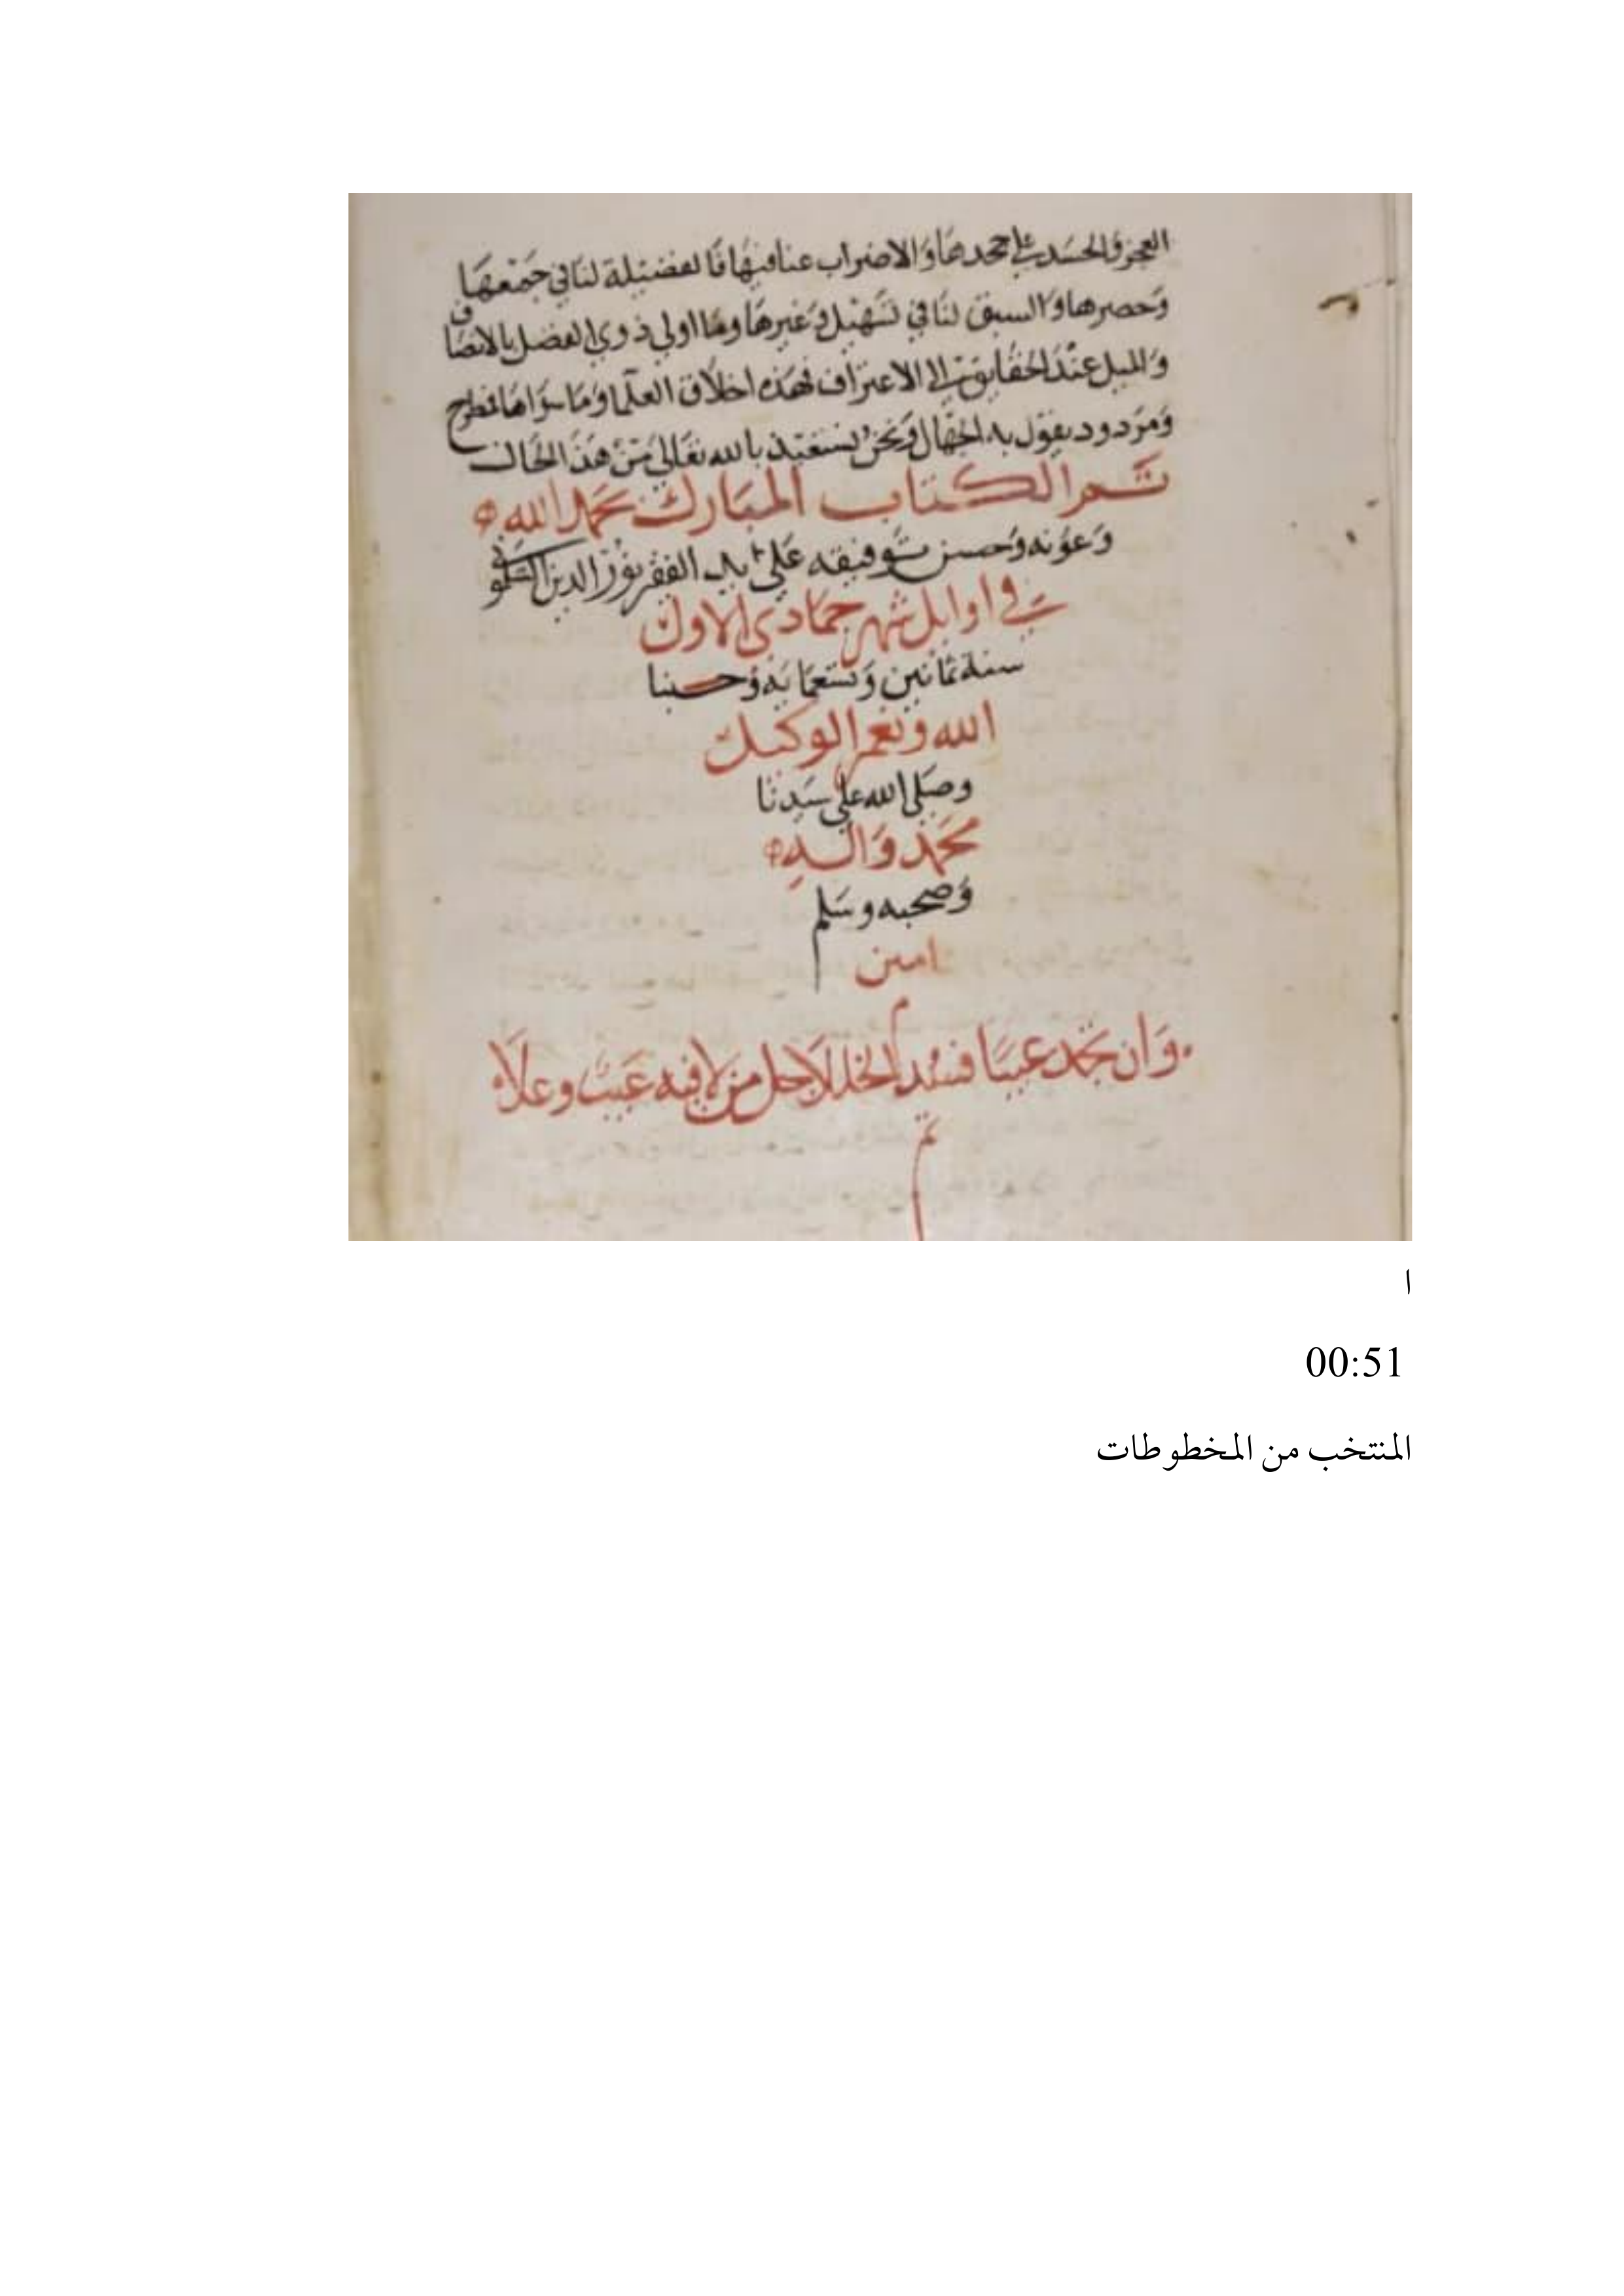 العجز والحسد على جحدها والاضراب عنا فيها فالفضيلة لنا في جمعها
وحصرها والسبق لنا في تسهيل وغيرها وما اولي ذوي الفضل بالانصاف
والميل عند الحقايق الي الاعتراف فهذه اخلاق العلما وما سواها مطرح
ومردود يقول به الجهال ونحن نستعيذ بالله تعالي من هذا الحال
تم الكتاب المبارك بحمد الله
وعونه وحسن توفيقه علي يد الفقير نور الدين
في اوايل شهر جمادي الاول
سنة ثمانين وتسعمايه وحسبنا
الله ونعم الوكيل
وصلي الله علي سيدنا
محمد واله
وصحبه وسلم
امين
م
وان تجد عيبا فسد الخللا جل من لا فيه عيب وعلا
تم
ا
00:51
المنتخب من المخطوطات